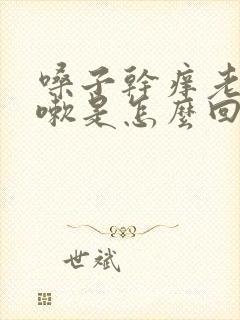 嗓子幹痒老
嗽是怎麼回
世斌